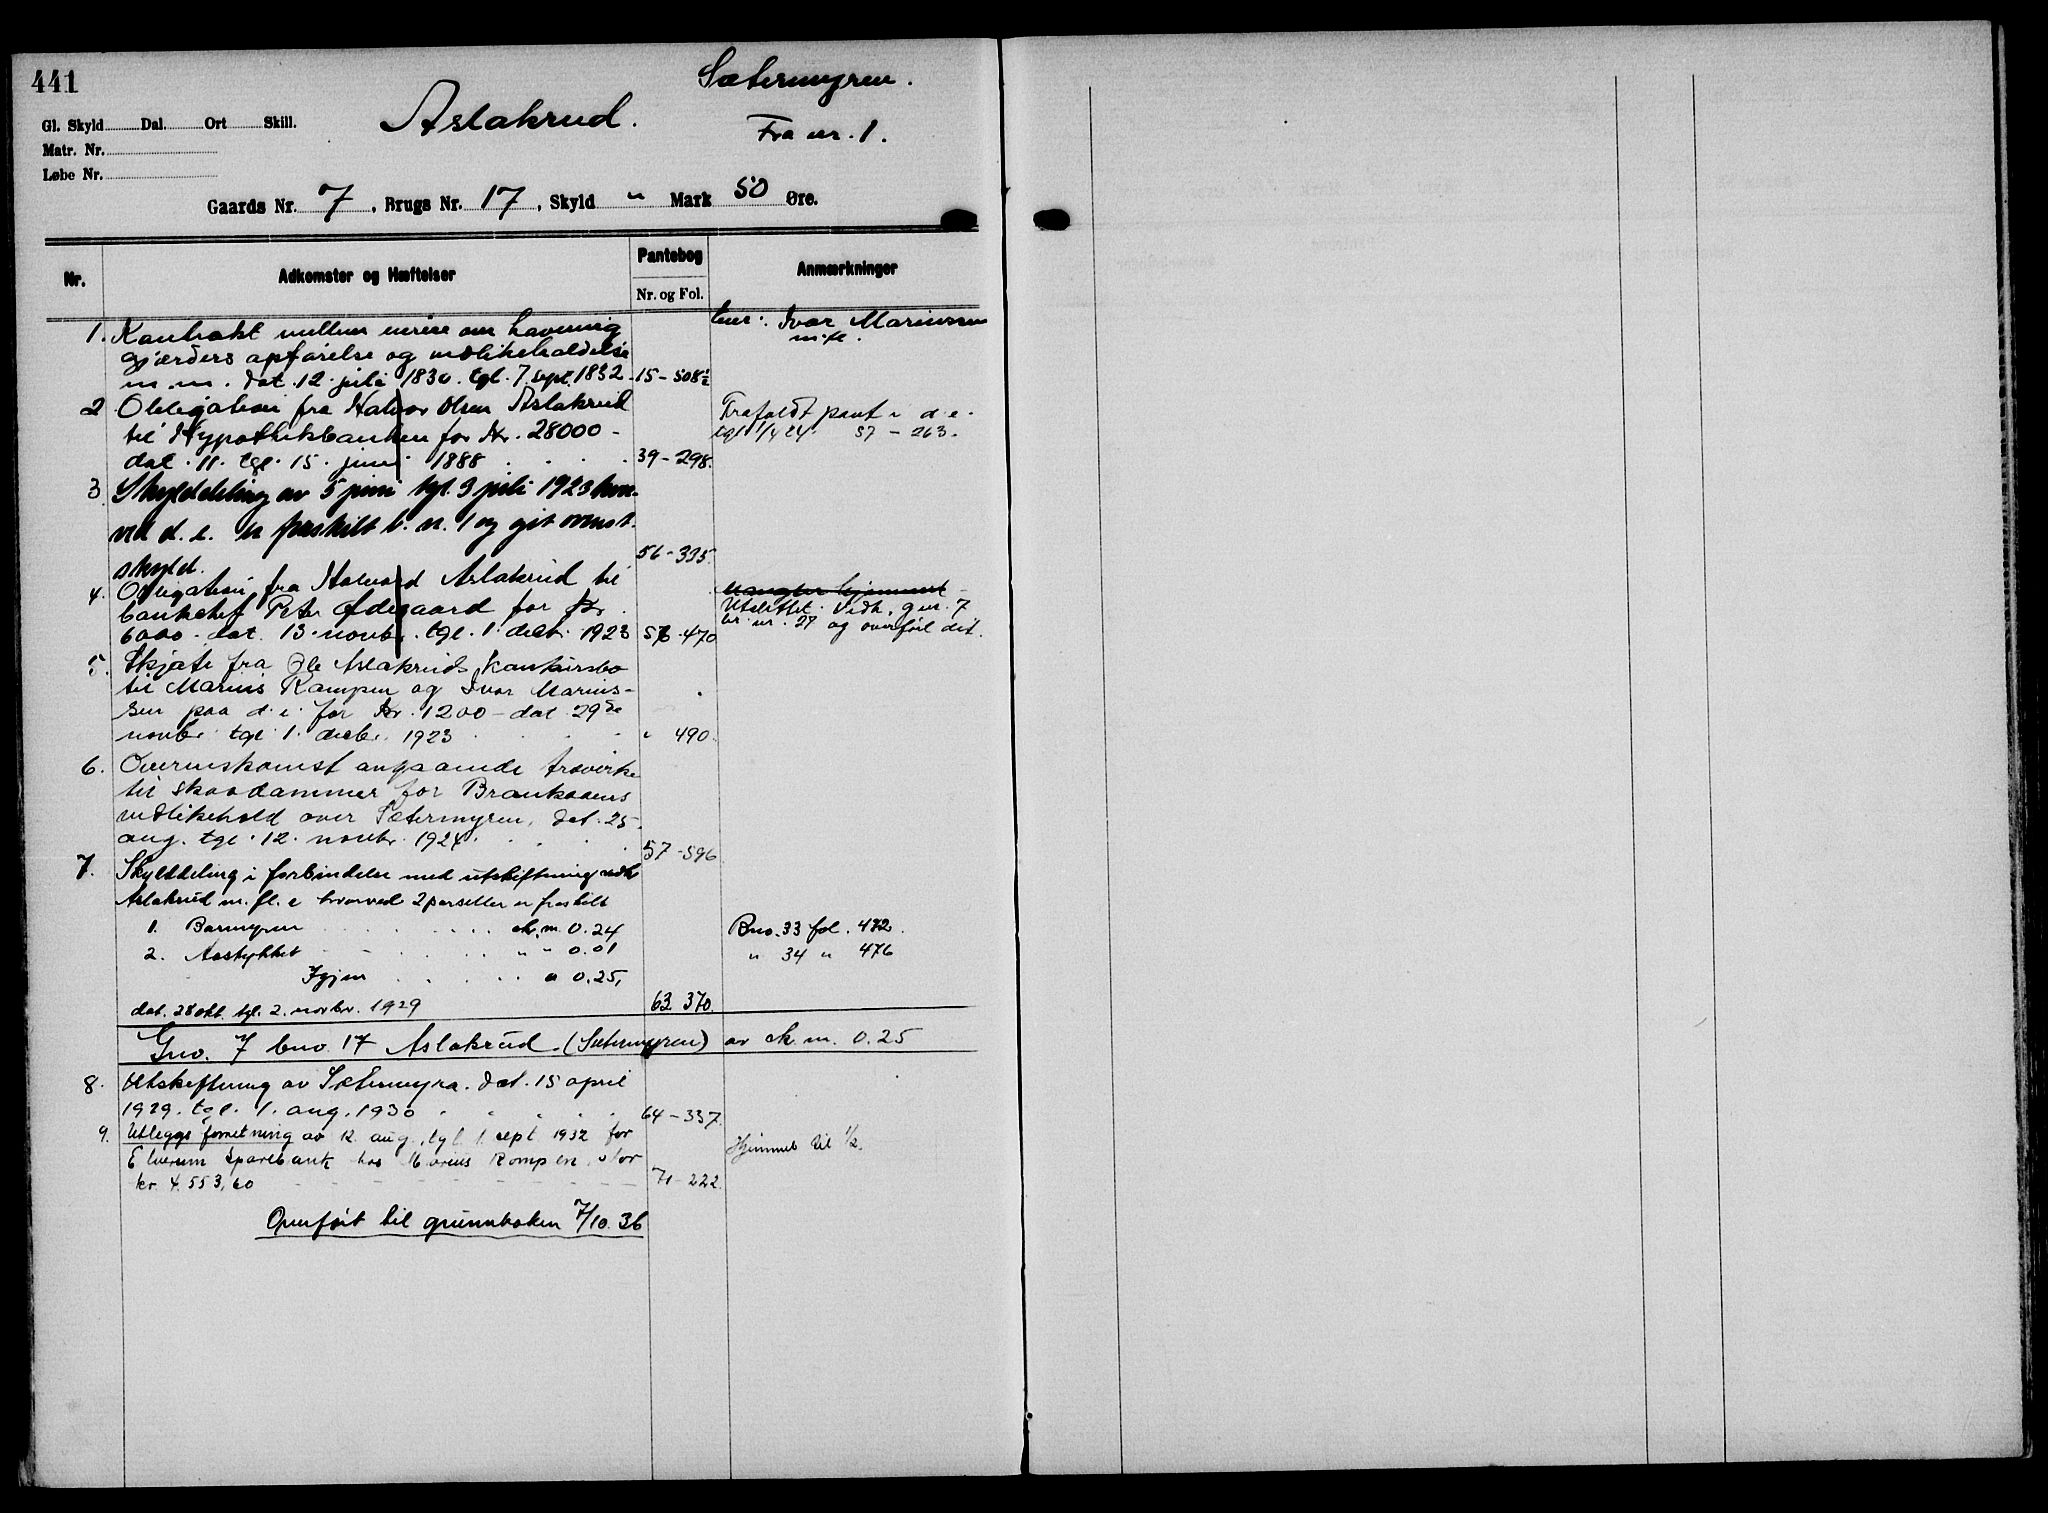 441
Sætermyren.
Aslakrud.
Fra nr. 1.
Gl. Skyld Dal. Ort Skill.
Matr. Nr.
Løbe Nr.
Gaards Nr. 7, Brugs Nr. 17, Skyld " Mark 50 Øre.
Nr. Adkomster og Hæftelser Pantebog Nr. og Fol. Anmærkninger
1. Kontrakt mellem eierne om havning
gjærders opførelse og vedlikeholdelse
m. m. dat. 12 juli 1830. tgl. 7. sept. 1832 15-508
Eier: Ivar Mariussen
m.fl.
2 Obligation fra Halvor Olsen Aslakrud
til Hypothekbanken for Kr. 28000-
dat. 11. tgl. 15. juni 1888 39-298.
Frafaldt pant i d.e.
tgl 1/4 24. 57-263.
3 Skylddeling av 5 juni tgl. 3 juli 1923 hvor-
ved d. e. er fraskilt b. n. 1 og git ovenst.
skyld. 56-335.
4. Obligation fra Halvard Aslakrud til
banksjef Peter Ødegaard for Kr.
6000- dat. 13. novbr. tgl. 1. decbr. 1923 56-470
Mangler hjemmel
Utslettet. Vedk. g.nr. 7
br. nr. 27 og overført dit.
5. Skjøte fra Ole Aslakruds konkursbo
til Marius Rampen og Ivar Marius-
sen paa d. e. for Kr. 1200- dat. 29de
novbr. tgl. 1. decbr. 1923 " 490.
6. Overenskomst angaaende trævirke
til skaadammer for
vedlikehold over Sætermyren, dat. 25.
aug. tgl. 12. novbr. 1924. 57-596
7. Skylddeling i forbindelse med utskiftning vedk
Aslakrud m. fl. e hvorved 2 parseller er fraskilt
1. Barmyren sk. m. 0.24 Bno. 33 fol. 472.
2. Aastykket " " 0.01 " 34 " 476
Igjen " 0.25,
dat. 28 okt. tgl. 2. novbr. 1929 63 370.
Gno. 7 bno. 17 Aslakrud. (Sætermyren) av sk. m. 0.25
8. Utskiftning av Sætermyra. dat. 15 april
1929. tgl. 1. aug. 1930 64-337.
9. Utleggsforretning av 12 aug., tgl. 1. sept 1932 for
Elverum Sparebank hos Marius Rampen, stor
kr. 4.553,60 71-222.
Hjemmel til 1/2.
Overført til grunnboken 7/10. 36